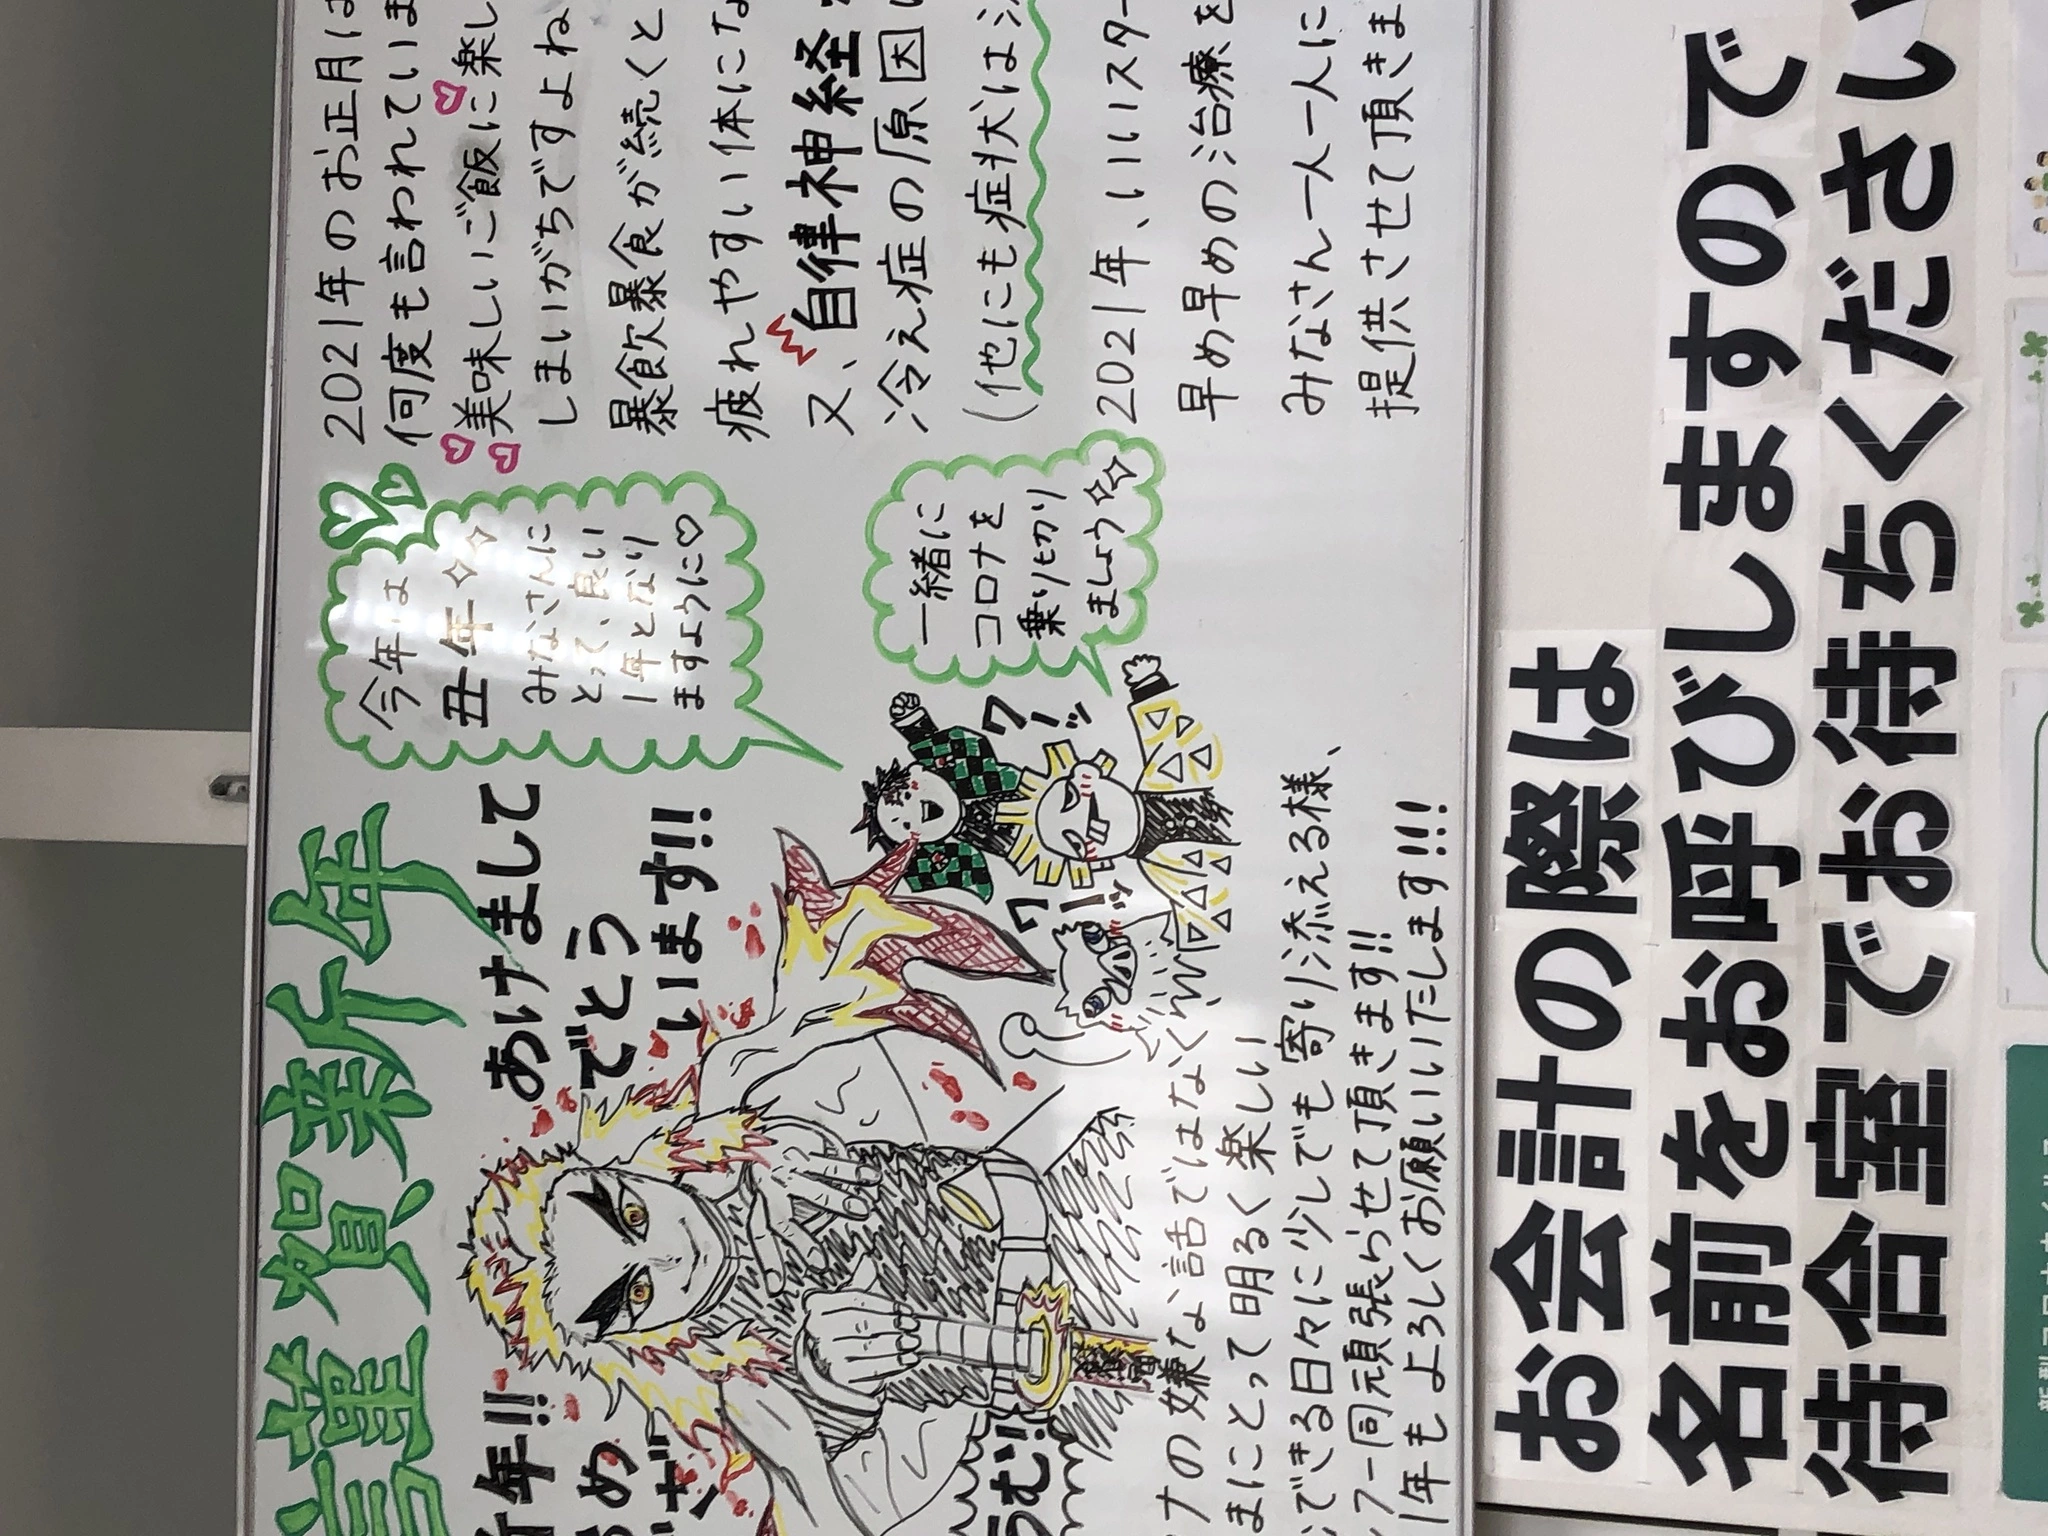 謹賀新年
年!!
あけまして
でとう
います!!
今年は
丑年
みなさんに
とって、良い
1年となり
ますように♡
一緒に
コロナを
乗り切り
ましょう
ワーッ
ワーッ
うむ!!
ナの嫌な話ではなく、
まにとって明るく楽しい
できる日々に少しでも寄り添える様、
フ一同頑張らせて頂きます!!
1年もよろしくお願いいたします!!!
2021年のお正月は
何度も言われていま
美味しいご飯に楽し
しまいがちですよね
暴飲暴食が続くと
疲れやすい体にな
又、自律神経
冷え症の原因
(他にも症状は
2021年、いいスター
早め早めの治療を
みなさん一人一人に
提供させて頂きま
お会計の際は
名前をお呼びしますので
待合室でお待ちください